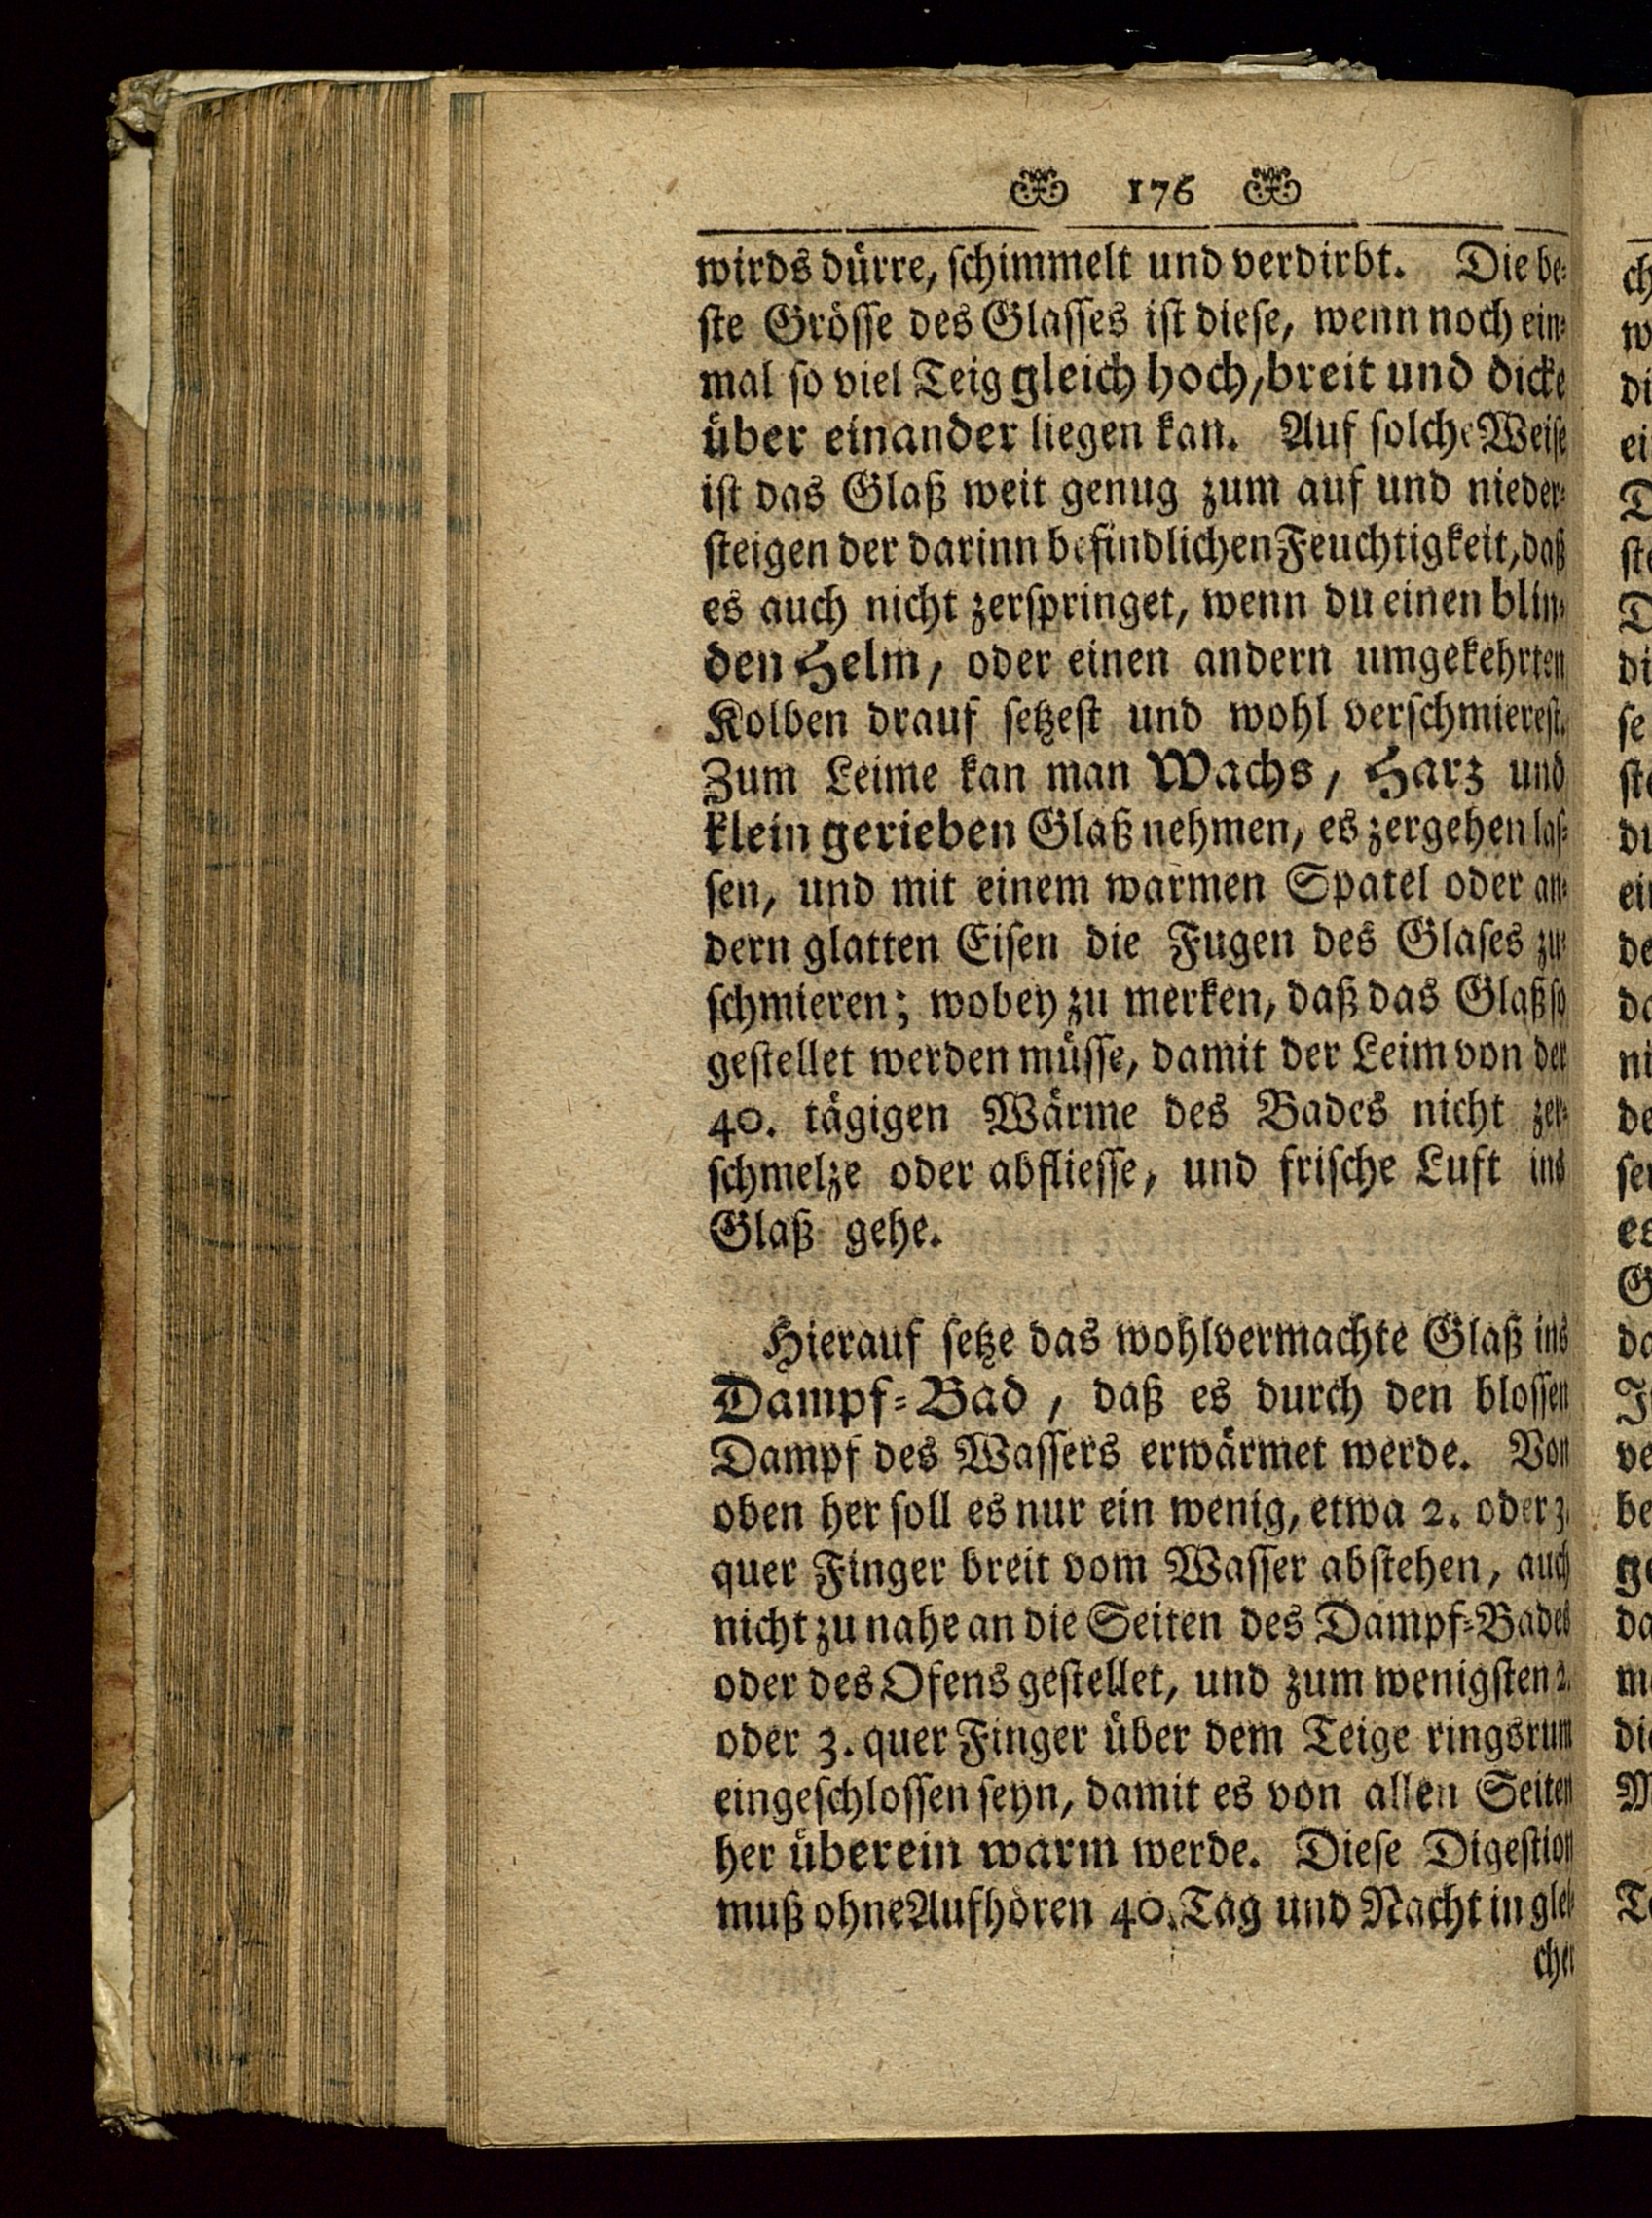 176
wirds dürre, schimmelt und verdirbt. Die be-
ste Grösse des Glasses ist diese, wenn noch ein-
mal so viel Teig gleich hoch, breit und dicke
über einander liegen kan. Auf solche Weise
ist das Glaß weit genug zum auf und nieder-
steigen der darinn befindlichen Feuchtigkeit, daß
es auch nicht zerspringet, wenn du einen blin-
den Helm, oder einen andern umgekehrten
Kolben drauf setzest und wohl verschmierest.
Zum Leime kan man Wachs, Harz und
klein gerieben Glaß nehmen, es zergehen las-
sen, und mit einem warmen Spatel oder an-
dern glatten Eisen die Fugen des Glases zu-
schmieren; wobey zu merken, daß das Glaß so
gestellet werden müsse, damit der Leim von der
40. tägigen Wärme des Bades nicht zer-
schmelze oder abfliesse, und frische Luft ins
Glaß gehe.
Hierauf setze das wohlvermachte Glaß ins
Dampf-Bad, daß es durch den blossen
Dampf des Wassers erwärmet werde. Von
oben her soll es nur ein wenig, etwa 2. oder 3.
quer Finger breit vom Wasser abstehen, auch
nicht zu nahe an die Seiten des Dampf-Bades
oder des Ofens gestellet, und zum wenigsten 2.
oder 3. quer Finger über dem Teige ringsrum
eingeschlossen seyn, damit es von allen Seiten
her überein warm werde. Diese Digestion
muß ohne Aufhören 40. Tag und Nacht in glei-
cher